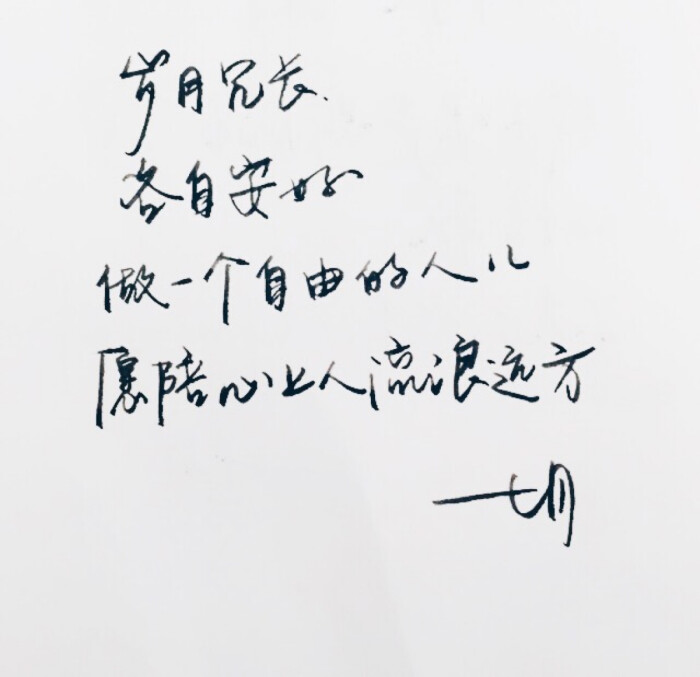 岁月冗长.
各自安好
做一个自由的人儿
愿陪心上人流浪远方
七月